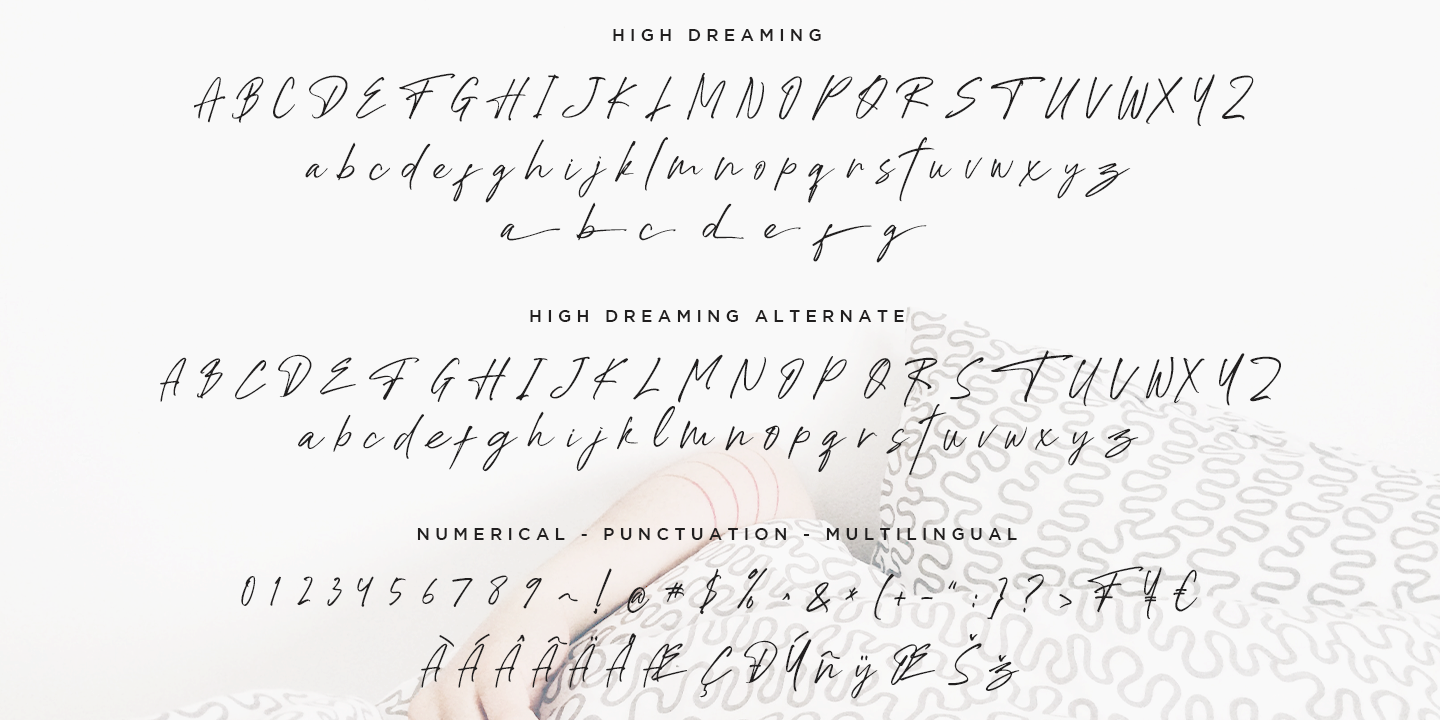 HIGH DREAMING
A B C D E F G H I J K L M N O P Q R S T U V W X Y Z
a b c d e f g h i j k l m n o p q r s t u v w x y z
a b c d e f g
HIGH DREAMING ALTERNATE
A B C D E F G H I J K L M N O P Q R S T U V W X Y Z
a b c d e f g h i j k l m n o p q r s t u v w x y z
NUMERICAL - PUNCTUATION - MULTILINGUAL
0 1 2 3 4 5 6 7 8 9 ~ ! @ # $ % ^ & * ( + - " : } ? > ₣ ¥ €
À Á Â Ã Ä Å Æ Ç Ð Ú ñ ÿ Œ Š ž